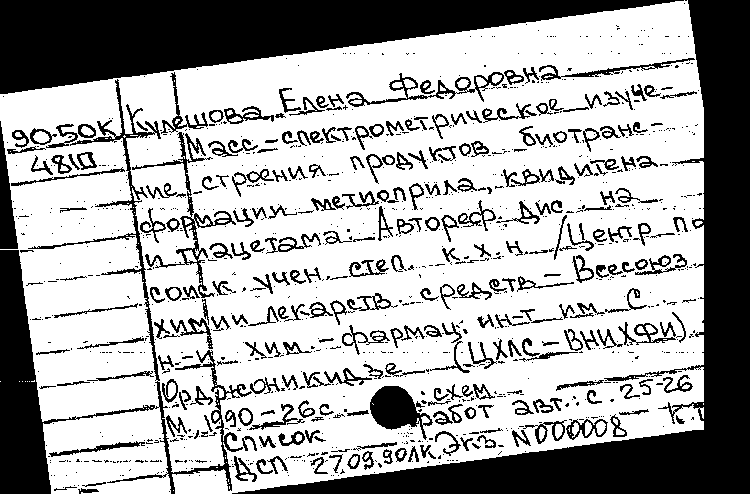 90-50К Кулешова, Елена Федоровна.
481П Масс-спектрометрическое изуче-
ние строения продуктов биотранс-
формации метиоприла, квидитена
и тиацетама: Автореф. дис. на
соиск. учен. степ. к.х.н /Центр по
химии лекарств. средств - Всесоюз
н-и. хим.-фармац. ин-т им. С.
Орджоникидзе (ЦХЛС-ВНИХФИ)
М., 1990 - 26с. :схем
Список работ авт.: с. 25-26
ДСП 27.09.90 Экз. N000008